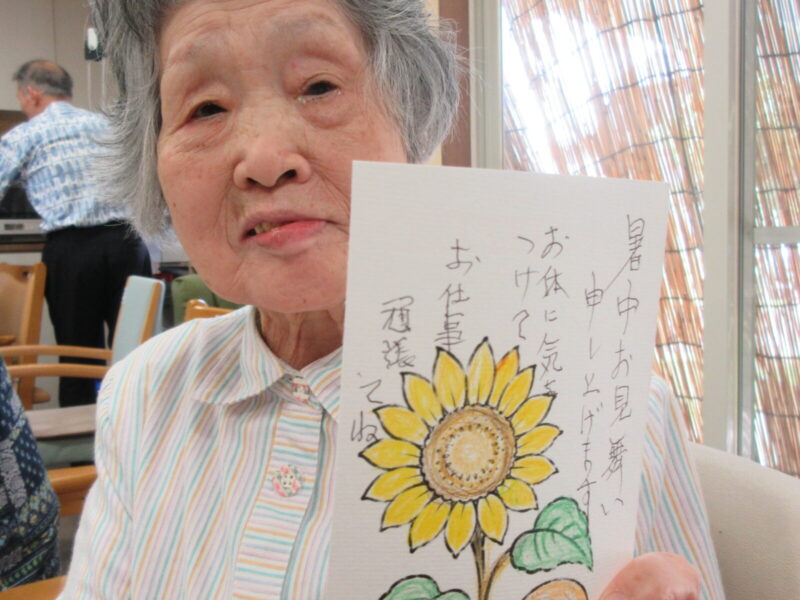 暑中お見舞い
申し上げます
お体に気を
つけて
お仕事
頑張てね